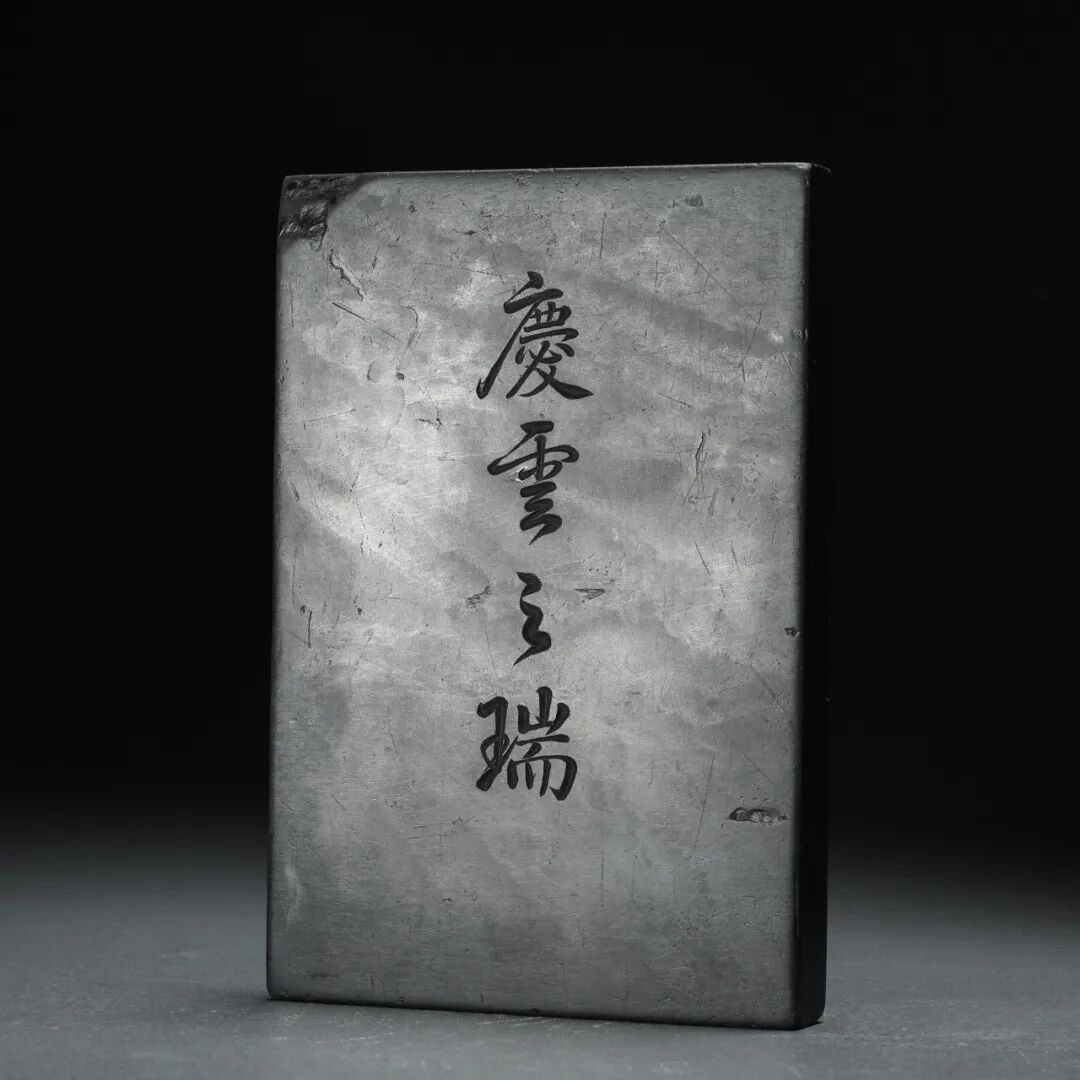 慶雲之瑞